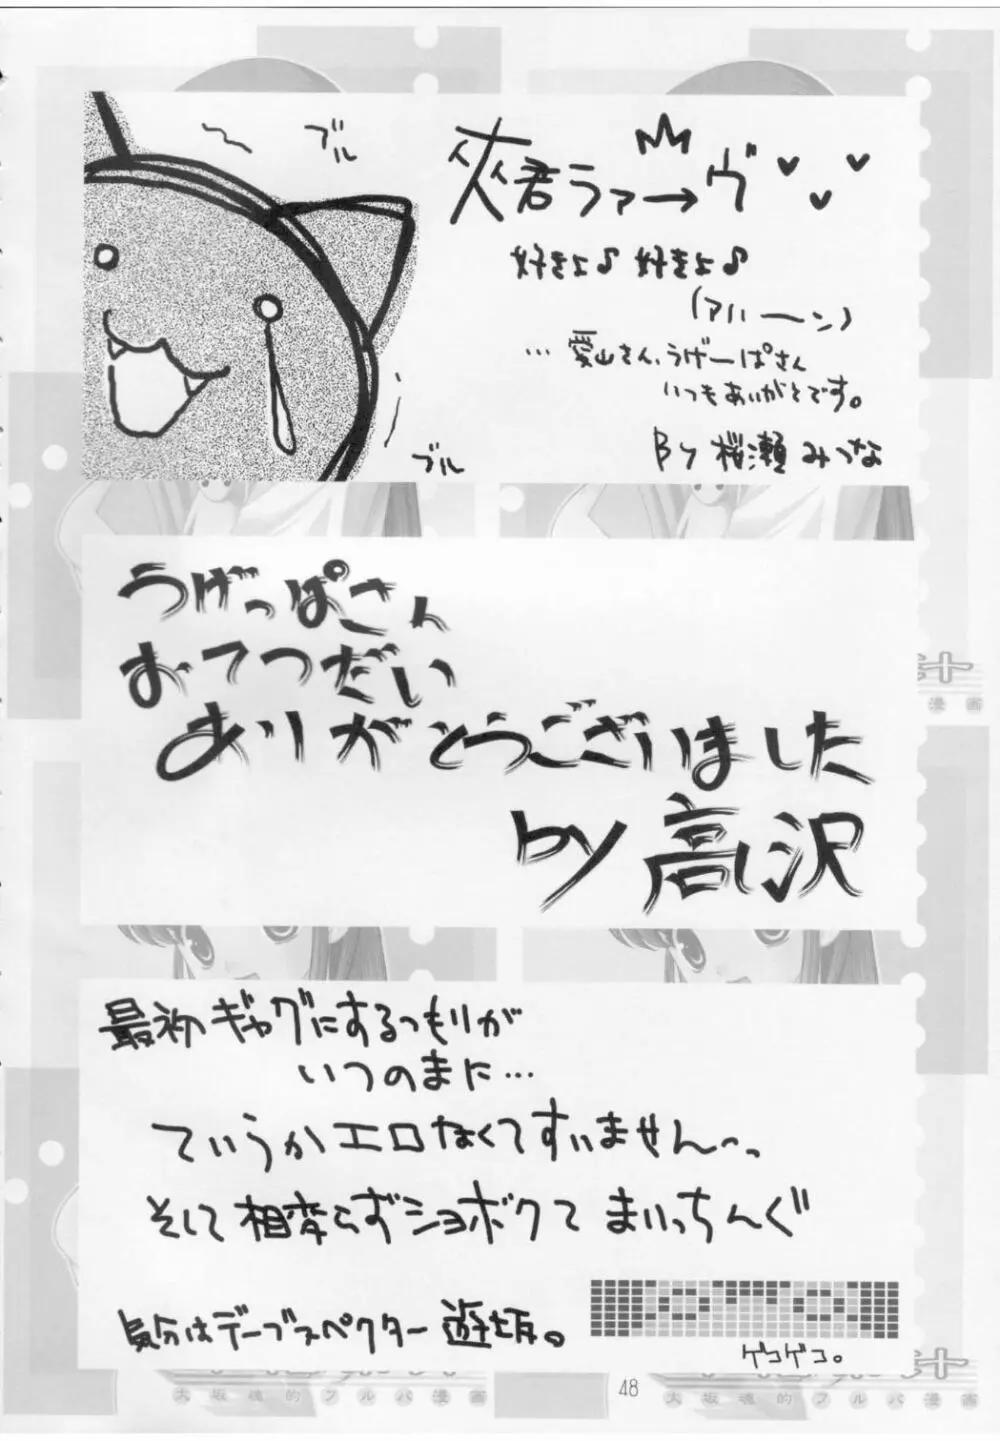 ブル
夾君ラァーヴ
好きよ♪ 好きよ♪
(アハーン)
… 愛山さん、うげーぱさん
いつもありがとです。
By 桜瀬みつな
ブル
うげっぱさん
おてつだい
ありがとうございました
by 高沢
最初ギャグにするつもりが
いつのまに…
ていうかエロなくてすいません〜っ
そして相変らずショボクてまいっちんぐ
気分はデーブスペクター 遊坂。
ゲコゲコ。
48
汁
漫画
大坂魂的フルバ漫画
大坂魂的フルバ漫画